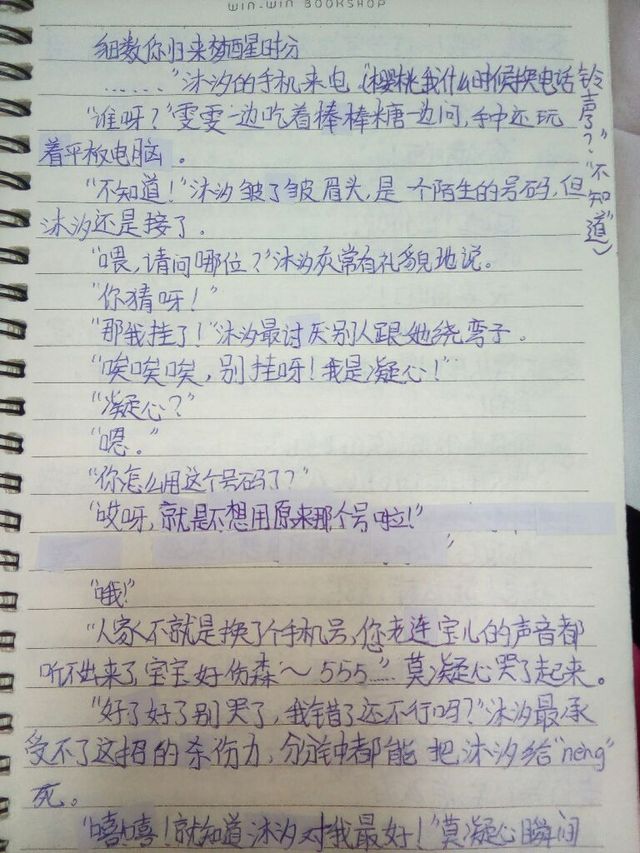 WIN-WIN BOOKSHOP
细数你归来梦醒星时分
……"沐汐的手机来电(樱桃:我什么时候换电话铃声了?""不知道")
"谁呀?"雯雯一边吃着棒棒糖一边问,手中还玩
着平板电脑。
"不知道!"沐汐皱了皱眉头,是一个陌生的号码,但
沐汐还是接了。
"喂,请问哪位?"沐汐灰常有礼貌地说。
"你猜呀!"
"那我挂了!"沐汐最讨厌别人跟她绕弯子。
"唉唉唉,别挂呀!我是凝心!"
"凝心?"
"嗯。"
"你怎么用这个号码了?"
"哎呀,就是不想用原来那个号啦!"
"
"哦!"
"人家不就是换了个手机号,您老连宝儿的声音都
听不出来了宝宝好伤森~555……"莫凝心哭了起来。
"好了好了别哭了,我错了还不行吗?"沐汐最承
受不了这招的杀伤力,分分钟都能把沐汐给"neng"
死。
"嘻嘻!就知道沐汐对我最好!"莫凝心瞬间